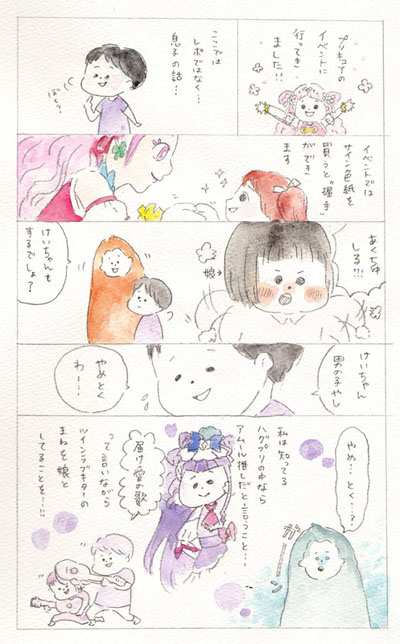 プリキュアの
イベントに
行ってき
ました!!
ここでは
レポではなく…
息子の話…
ぼく?
イベントでは
サイン色紙を
買うと"握手"
ができ
ます
あくちゅ
しる!!!
娘→
けいちゃんも
するでしょ?
けいちゃん
男の子やし
やめとく
わー…
やめ…とく…?
私は知ってる
ハグプリの中なら
アムール推しだと言うこと…
届け!愛の歌
って言いながら
ツインラブギターの
まねを娘と
してることを…!!!